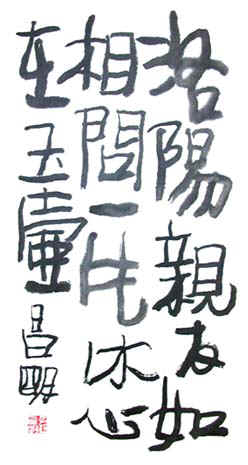 洛陽親友如
相問一片冰心
在玉壺
昌明